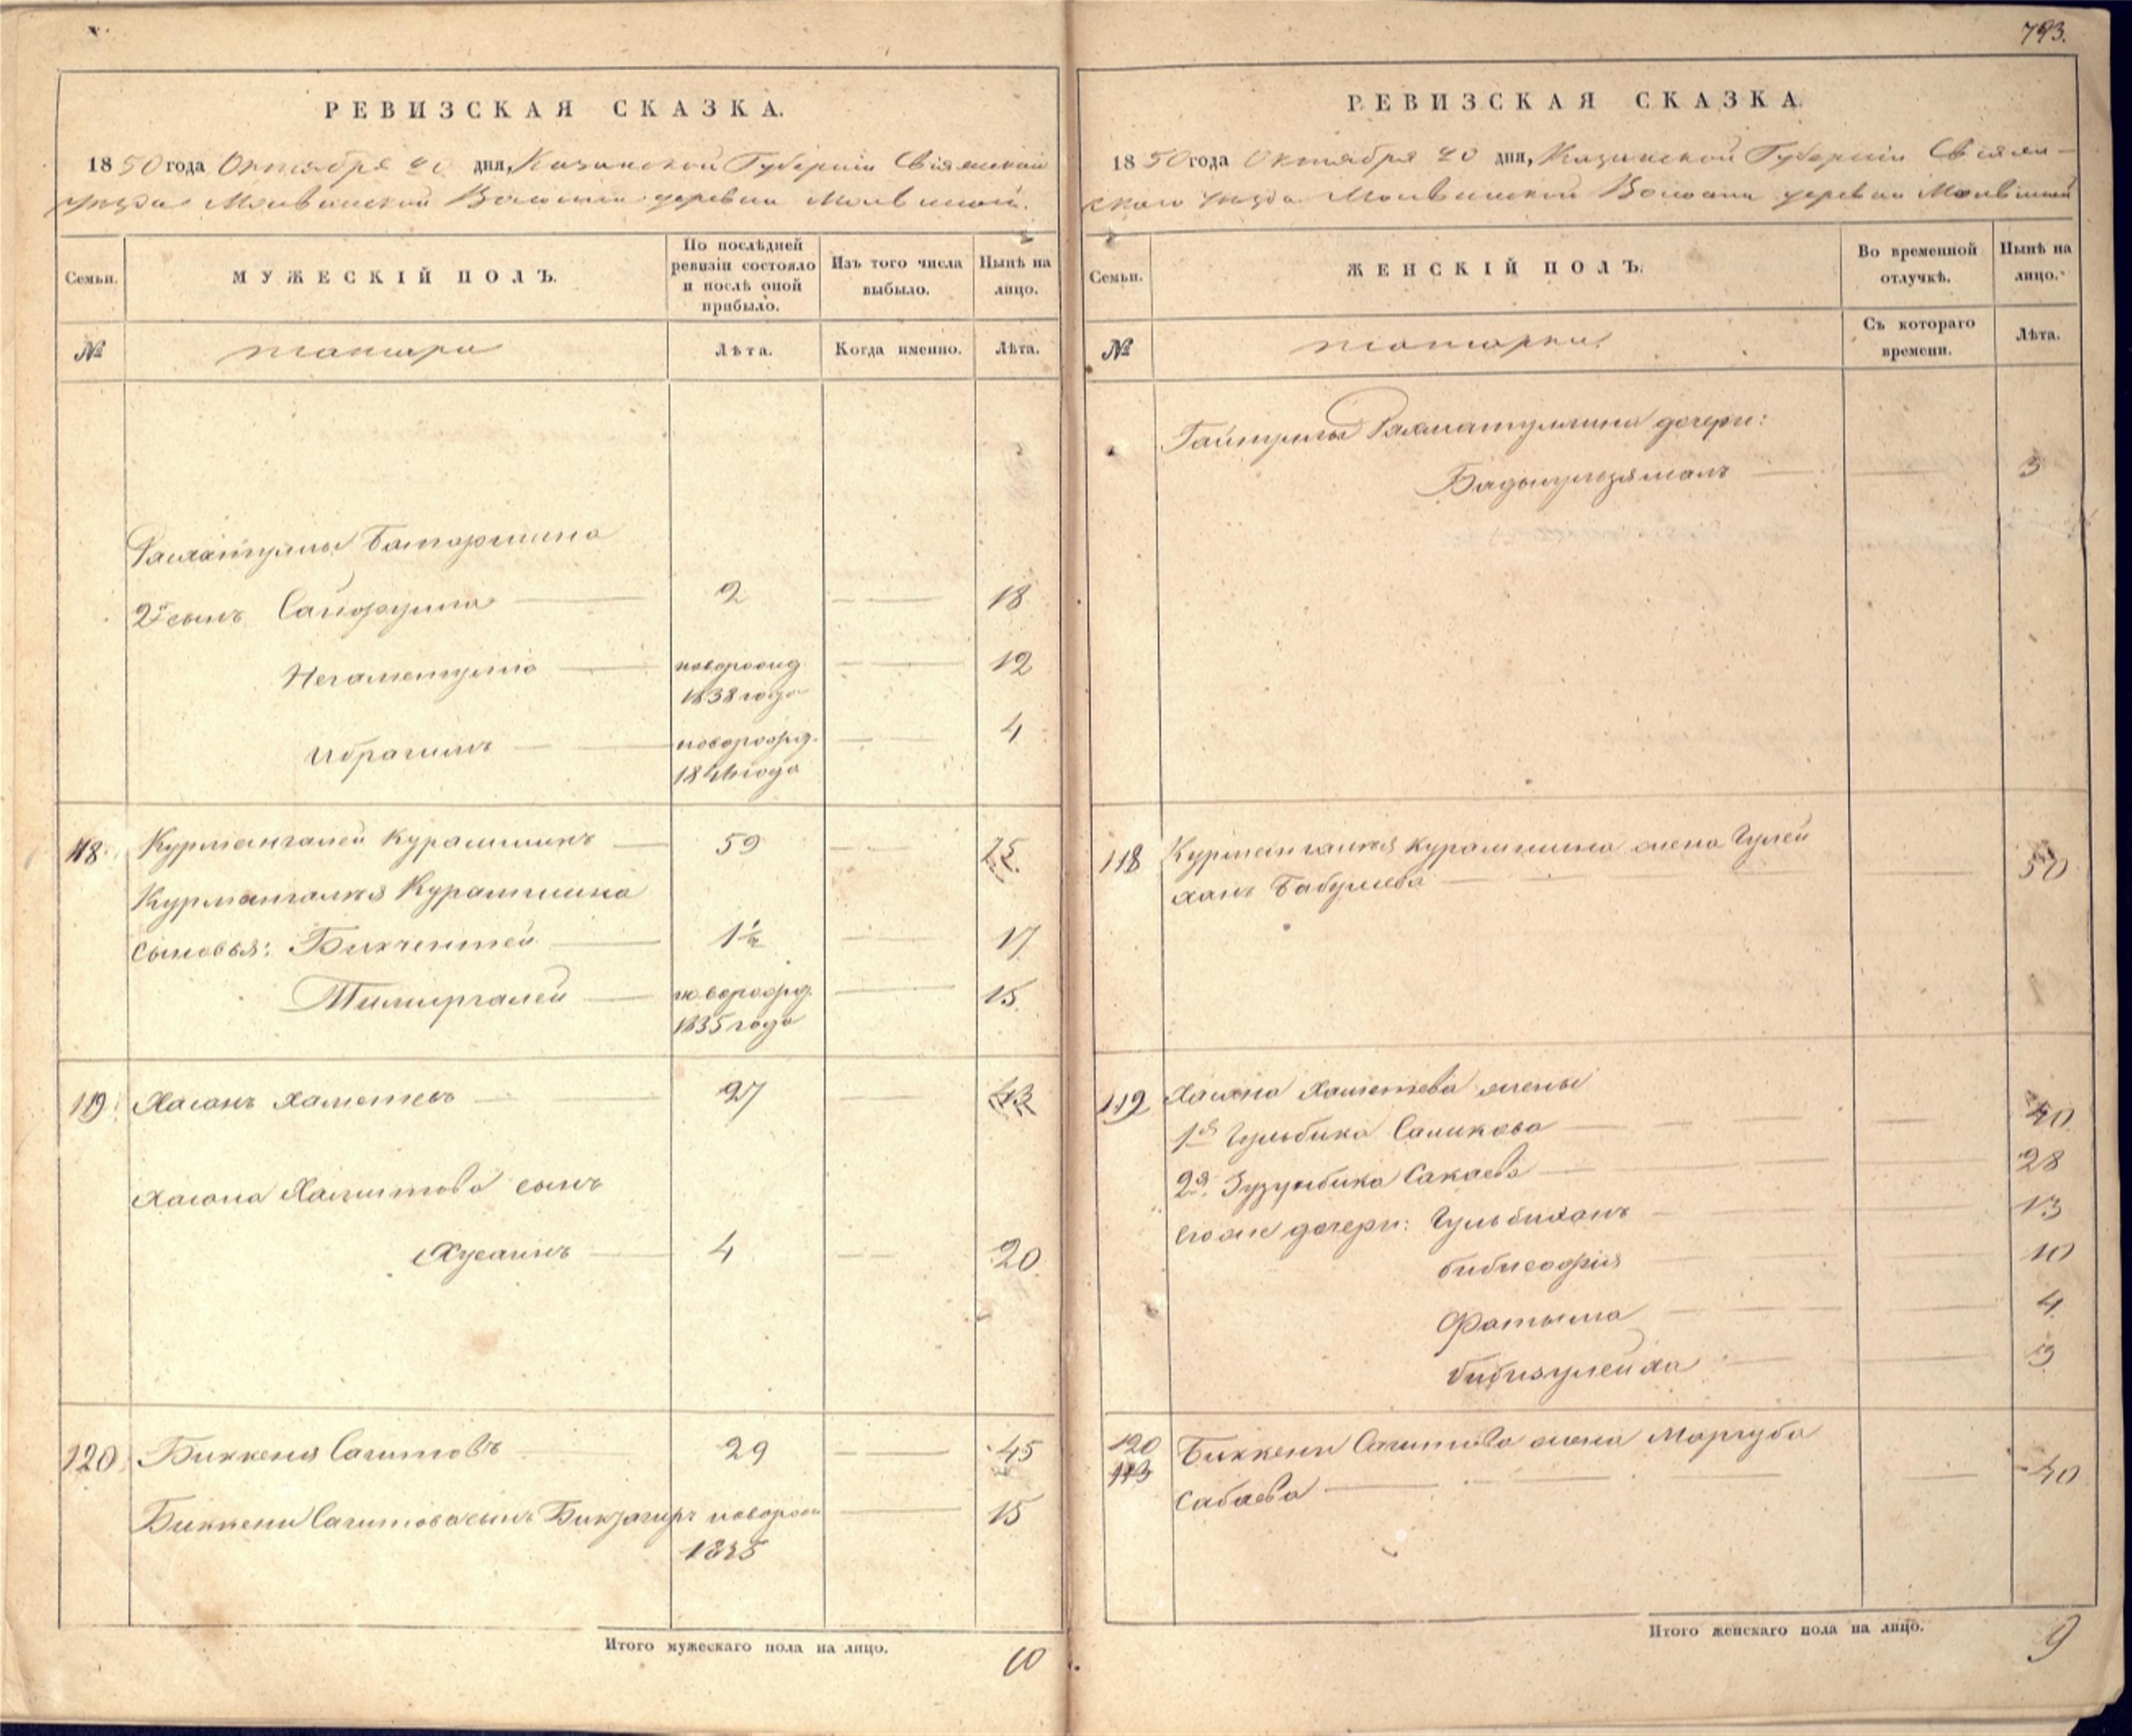 РЕВИЗСКАЯ СКАЗКА.
1850 года Октября 20 дня, Казанской Губерніи Свіяжскаго
уѣзда Молвинской Волости деревни Молвиной.
Семьи.
МУЖЕСКІЙ ПОЛЪ.
По послѣдней ревизіи состояло и послѣ оной прибыло.
Изъ того числа выбыло.
Нынѣ на лицо.
№
татары
Лѣта.
Когда именно.
Лѣта.
Рахматуллы Батаршина
2й сынъ Сайфулла 2 18
Негаметулла новорожд 12
1838 года
Ибрагимъ новорожд. 4
года
118. Курмангалей Курамшинъ 59 75
Курмангалея Курамшина
сыновья: Бикчентей 1½ 17
Тимиргалей новорожд. 15
1835 года
119. Хасанъ Хаметевъ 27 43
Хасана Хаметева сынъ
Хусаинъ 4 20
120 Биккеня Сагитовъ 29 45
Биккени Сагитова сынъ новорож 15
1835
Итого мужескаго пола на лицо. 10
793.
РЕВИЗСКАЯ СКАЗКА.
1850 года Октября 20 дня, Казанской Губерніи Свіяж-
скаго уѣзда Молвинской Волости деревни Молвиной
Семьи.
ЖЕНСКІЙ ПОЛЪ.
Во временной отлучкѣ.
Нынѣ на лицо.
№
татарки
Съ котораго времени.
Лѣта.
Рахматуллина дочери:
3
118 Курмангалея Курамшина жена Гулей
ханъ 50
119 Хасана Хаметева жены
1я Гульбика Саликова 40
2я 28
его же дочери: Гульбиханъ 13
бибисафия 10
Фатыма 4
бибизулейха 3
120 Биккени Сагитова жена Маргуба
113
Сабаева 40
Итого женскаго пола на лицо. 9